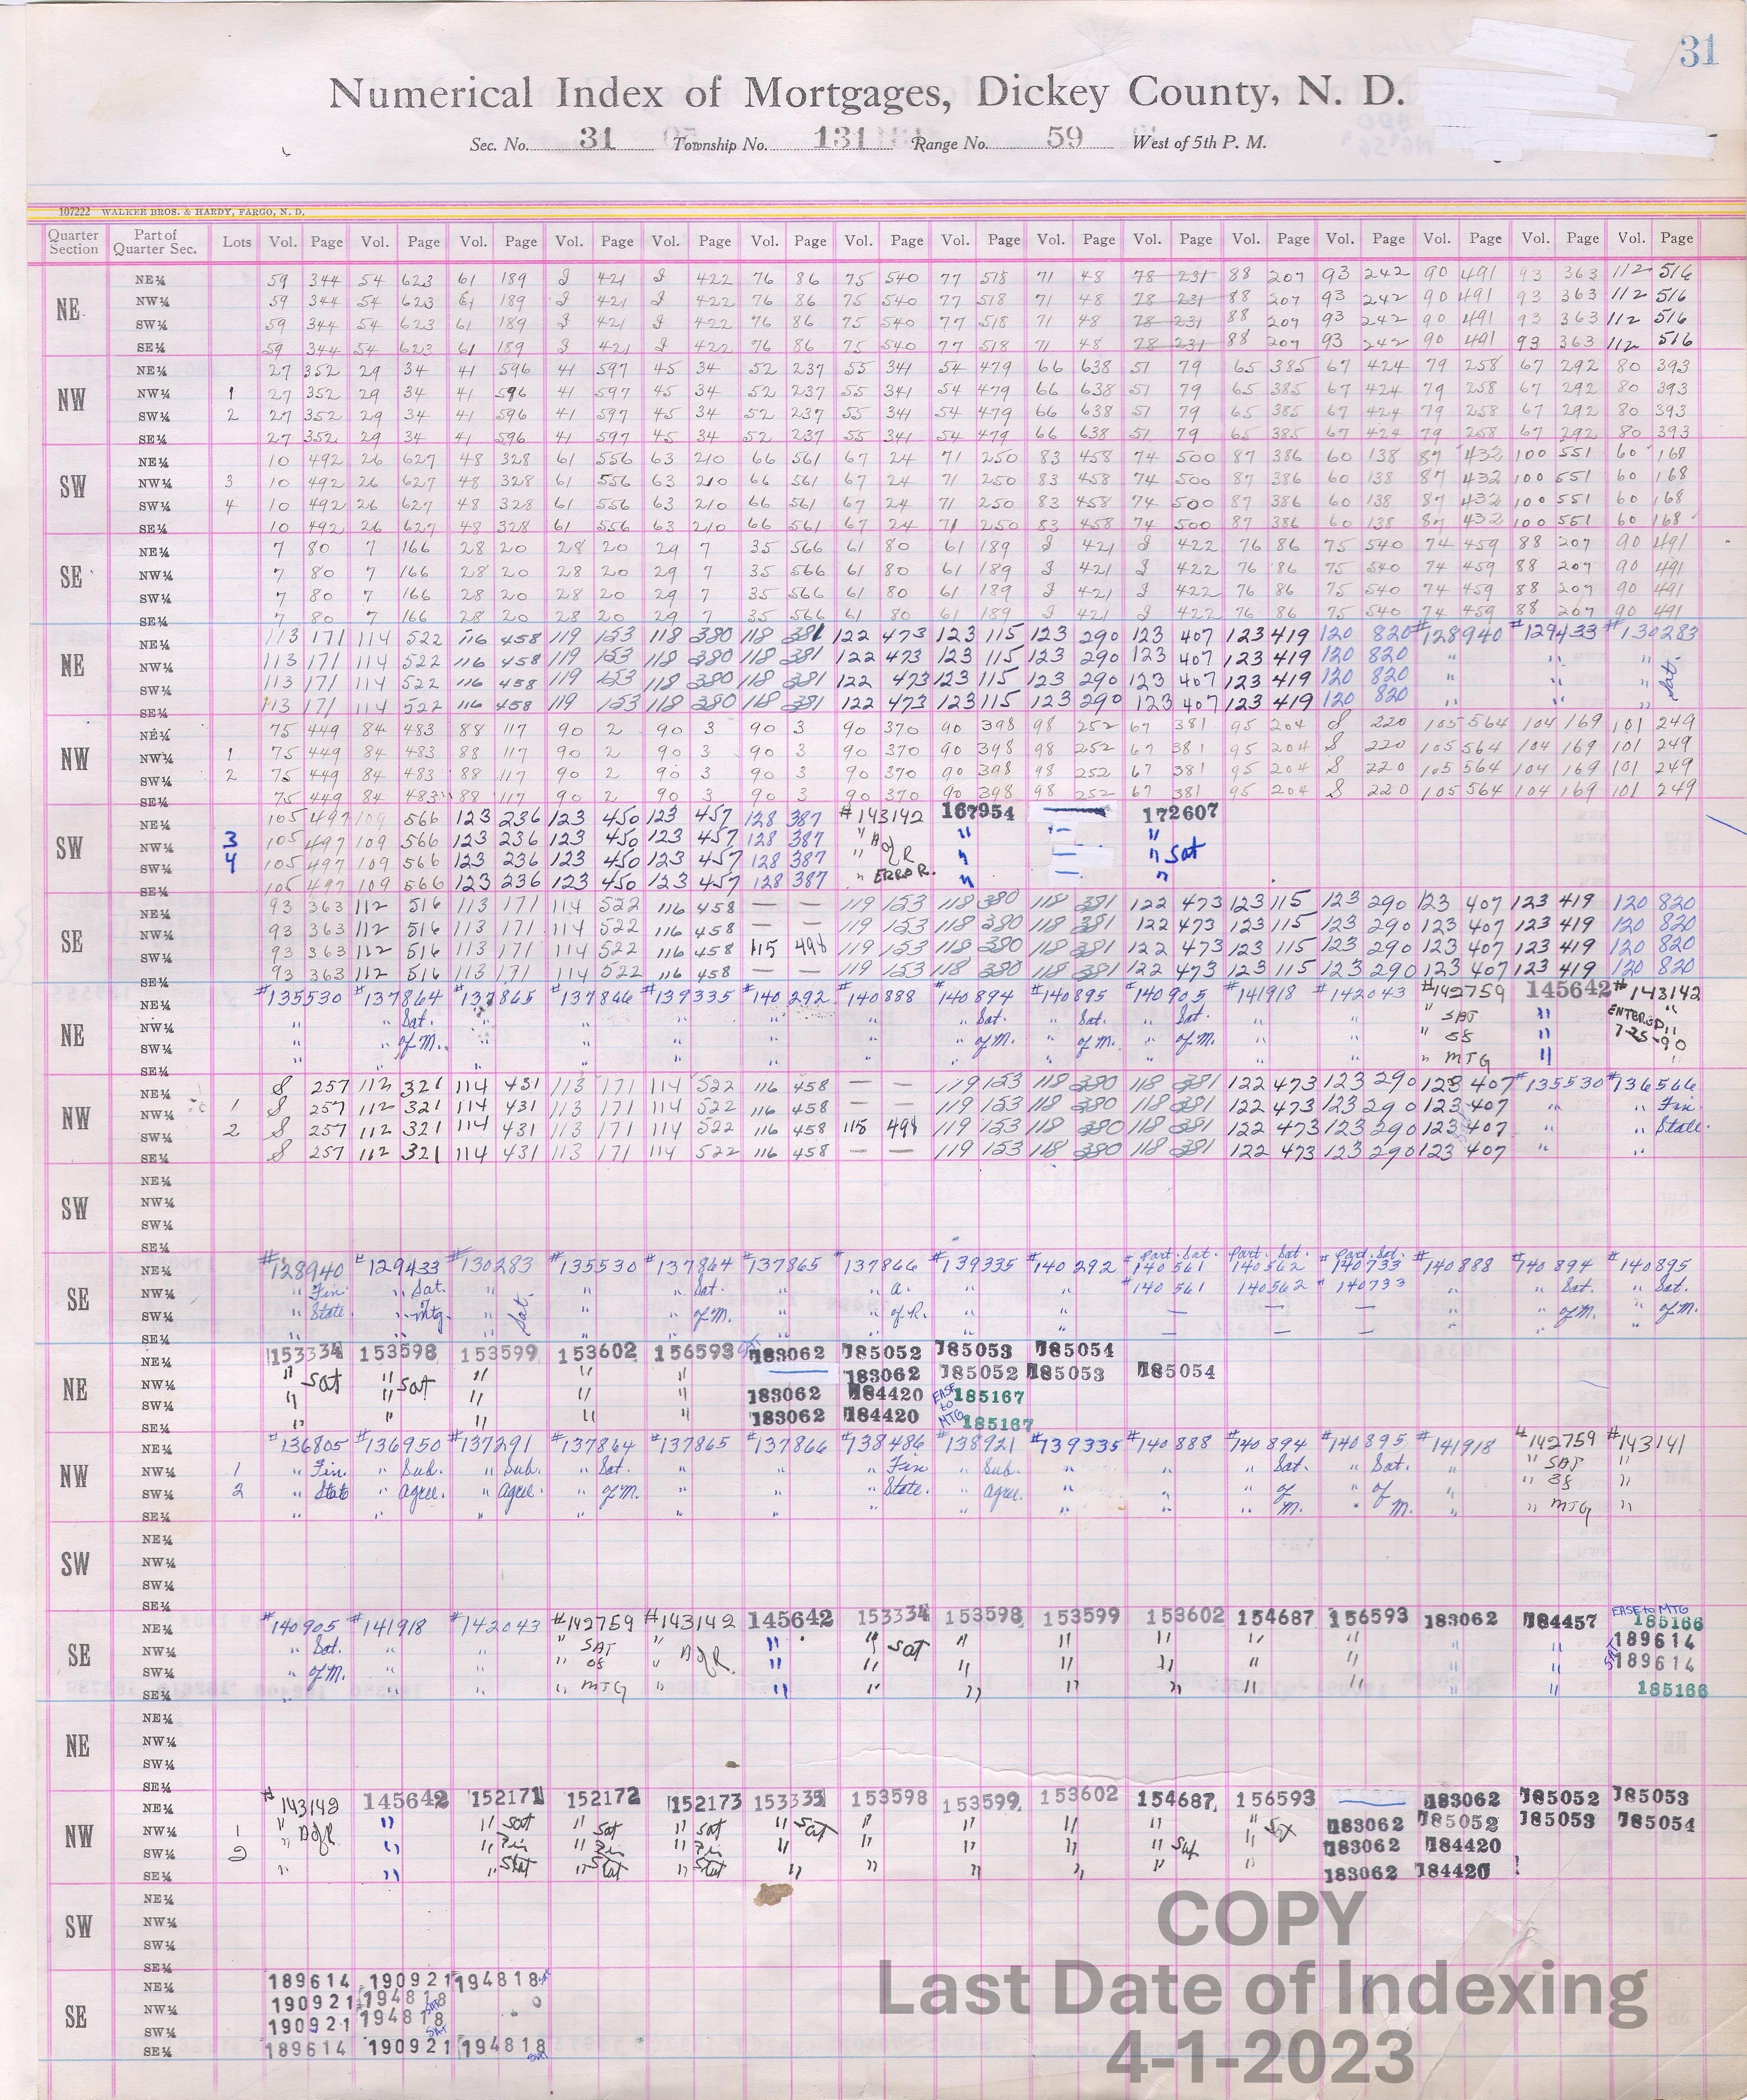 31
Numerical Index of Mortgages, Dickey County, N. D.
Sec. No. 31 Township No. 131 Range No. 59 West of 5th P. M.
107222 WALKER BROS. & HARDY, FARGO, N. D.
Quarter Section Part of Quarter Sec. Lots Vol. Page Vol. Page Vol. Page Vol. Page Vol. Page Vol. Page Vol. Page Vol. Page Vol. Page Vol. Page Vol. Page Vol. Page Vol. Page Vol. Page Vol. Page
NE
NE¼ 59 344 54 623 61 189 J 421 J 422 76 86 75 540 77 518 71 48 78 231 88 207 93 242 90 491 93 363 112 516
NW¼ 59 344 54 623 61 189 J 421 J 422 76 86 75 540 77 518 71 48 78 231 88 207 93 242 90 491 93 363 112 516
SW¼ 59 344 54 623 61 189 J 421 J 422 76 86 75 540 77 518 71 48 78 231 88 207 93 242 90 491 93 363 112 516
SE¼ 59 344 54 623 61 189 J 421 J 422 76 86 75 540 77 518 71 48 78 231 88 207 93 242 90 491 93 363 112 516
NW
NE¼ 27 352 29 34 41 596 41 597 45 34 52 237 55 341 54 479 66 638 51 79 65 385 67 424 79 258 67 292 80 393
NW¼ 1 27 352 29 34 41 596 41 597 45 34 52 237 55 341 54 479 66 638 51 79 65 385 67 424 79 258 67 292 80 393
SW¼ 2 27 352 29 34 41 596 41 597 45 34 52 237 55 341 54 479 66 638 51 79 65 385 67 424 79 258 67 292 80 393
SE¼ 27 352 29 34 41 596 41 597 45 34 52 237 55 341 54 479 66 638 51 79 65 385 67 424 79 258 67 292 80 393
SW
NE¼ 10 492 26 627 48 328 61 556 63 210 66 561 67 24 71 250 83 458 74 500 87 386 60 138 87 432 100 551 60 168
NW¼ 3 10 492 26 627 48 328 61 556 63 210 66 561 67 24 71 250 83 458 74 500 87 386 60 138 87 432 100 551 60 168
SW¼ 4 10 492 26 627 48 328 61 556 63 210 66 561 67 24 71 250 83 458 74 500 87 386 60 138 87 432 100 551 60 168
SE¼ 10 492 26 627 48 328 61 556 63 210 66 561 67 24 71 250 83 458 74 500 87 386 60 138 87 432 100 551 60 168
SE
NE¼ 7 80 7 166 28 20 28 20 29 7 35 566 61 80 61 189 J 421 J 422 76 86 75 540 74 459 88 207 90 491
NW¼ 7 80 7 166 28 20 28 20 29 7 35 566 61 80 61 189 J 421 J 422 76 86 75 540 74 459 88 207 90 491
SW¼ 7 80 7 166 28 20 28 20 29 7 35 566 61 80 61 189 J 421 J 422 76 86 75 540 74 459 88 207 90 491
SE¼ 7 80 7 166 28 20 28 20 29 7 35 566 61 80 61 189 J 421 J 422 76 86 75 540 74 459 88 207 90 491
NE
NE¼ 113 171 114 522 116 458 119 153 118 380 118 381 122 473 123 115 123 290 123 407 123 419 120 820 #128940 #129433 #130283
NW¼ 113 171 114 522 116 458 119 153 118 380 118 381 122 473 123 115 123 290 123 407 123 419 120 820 " " "
SW¼ 113 171 114 522 116 458 119 153 118 380 118 381 122 473 123 115 123 290 123 407 123 419 120 820 " " " Sat.
SE¼ 113 171 114 522 116 458 119 153 118 380 118 381 122 473 123 115 123 290 123 407 123 419 120 820 " " "
NW
NE¼ 75 449 84 483 88 117 90 2 90 3 90 3 90 370 90 398 98 252 67 381 95 204 S 220 105 564 104 169 101 249
NW¼ 1 75 449 84 483 88 117 90 2 90 3 90 3 90 370 90 398 98 252 67 381 95 204 S 220 105 564 104 169 101 249
SW¼ 2 75 449 84 483 88 117 90 2 90 3 90 3 90 370 90 398 98 252 67 381 95 204 S 220 105 564 104 169 101 249
SE¼ 75 449 84 483 88 117 90 2 90 3 90 3 90 370 90 398 98 252 67 381 95 204 S 220 105 564 104 169 101 249
SW
NE¼ 105 497 109 566 123 236 123 450 123 457 128 387 #143142 167954 — 172607
NW¼ 3 105 497 109 566 123 236 123 450 123 457 128 387 " A of R " — "
SW¼ 4 105 497 109 566 123 236 123 450 123 457 128 387 " " — " Sat
SE¼ 105 497 109 566 123 236 123 450 123 457 128 387 " ERROR. " — "
SE
NE¼ 93 363 112 516 113 171 114 522 116 458 — — 119 153 118 380 118 381 122 473 123 115 123 290 123 407 123 419 120 820
NW¼ 93 363 112 516 113 171 114 522 116 458 — — 119 153 118 380 118 381 122 473 123 115 123 290 123 407 123 419 120 820
SW¼ 93 363 112 516 113 171 114 522 116 458 115 498 119 153 118 380 118 381 122 473 123 115 123 290 123 407 123 419 120 820
SE¼ 93 363 112 516 113 171 114 522 116 458 — — 119 153 118 380 118 381 122 473 123 115 123 290 123 407 123 419 120 820
NE
NE¼ #135530 #137864 #137865 #137866 #139335 #140292 #140888 #140894 #140895 #140905 #141918 #142043 #142759 145642 #143142
NW¼ " " Sat. " " " " " " Sat. " Sat. " Sat. " " " SAT " ENTERED "
SW¼ " " of M. " " " " " " of M. " of M. " of M. " " " OS " 7-25-90 "
SE¼ " " " " " " " " " " " " " MTG " "
NW
NE¼ S 257 112 321 114 431 113 171 114 522 116 458 — — 119 153 118 380 118 381 122 473 123 290 123 407 #135530 #136566
NW¼ 1 S 257 112 321 114 431 113 171 114 522 116 458 — — 119 153 118 380 118 381 122 473 123 290 123 407 " " Fin.
SW¼ 2 S 257 112 321 114 431 113 171 114 522 116 458 115 498 119 153 118 380 118 381 122 473 123 290 123 407 " " State.
SE¼ S 257 112 321 114 431 113 171 114 522 116 458 — — 119 153 118 380 118 381 122 473 123 290 123 407 " "
SW
NE¼
NW¼
SW¼
SE¼
SE
NE¼ #128940 #129433 #130283 #135530 #137864 #137865 #137866 #139335 #140292 Part. Sat. #140561 Part. Sat. 140562 Part. Sat. #140733 #140888 #140894 #140895
NW¼ " Fin. " Sat. " " " Sat. " " A. " " #140561 140562 #140733 " " Sat. " Sat.
SW¼ " State " Mtg. " Sat. " " of M. " " of R. " " — — — " " of M. " of M.
SE¼ " " " " " " " " " — — — " " "
NE
NE¼ 153334 153598 153599 153602 156593 183062 185052 185053 185054
NW¼ " Sat " Sat " " " — 183062 185052 185053 185054
SW¼ " " " " " 183062 184420 EASE to MTG 185167
SE¼ " " " " " 183062 184420 185167
NW
NE¼ #136805 #136950 #137291 #137864 #137865 #137866 #138486 #138921 #139335 #140888 #140894 #140895 #141918 #142759 #143141
NW¼ 1 " Fin. " Sub. " Sub. " Sat. " " " Fin " Sub. " " " Sat. " Sat. " " SAT "
SW¼ 2 " State " Agree. " Agree. " of M. " " " State. " Agree. " " " of " of " " OS "
SE¼ " " " " " " " " " " " M. " M. " " MTG "
SW
NE¼
NW¼
SW¼
SE¼
SE
NE¼ #140905 #141918 #142043 #142759 #143142 145642 153334 153598 153599 153602 154687 156593 183062 184457 EASE to MTG 185166
NW¼ " Sat. " " " SAT " A of R. " " Sat " " " " " " " 189614
SW¼ " of M. " " " OS " " " " " " " " " " SAT 189614
SE¼ " " " " MTG " " " " " " " " " " 185166
NE
NE¼
NW¼
SW¼
SE¼
NW
NE¼ #143142 145642 152171 152172 152173 153335 153598 153599 153602 154687 156593 — 183062 185052 185053
NW¼ 1 " A of R. " " Sat " Sat " Sat " Sat " " " " " Sat 183062 185052 185053 185054
SW¼ 2 " " " Fin " Fin " Fin " " " " " Sat " 183062 184420
SE¼ " " " Stat " Stat " Stat " " " " " " 183062 184420
SW
NE¼
NW¼
SW¼
SE¼
SE
NE¼ 189614 190921 194818 Sat
NW¼ 190921 194818 Sat
SW¼ 190921 194818 SAT
SE¼ 189614 190921 194818 Sat
COPY
Last Date of Indexing
4-1-2023